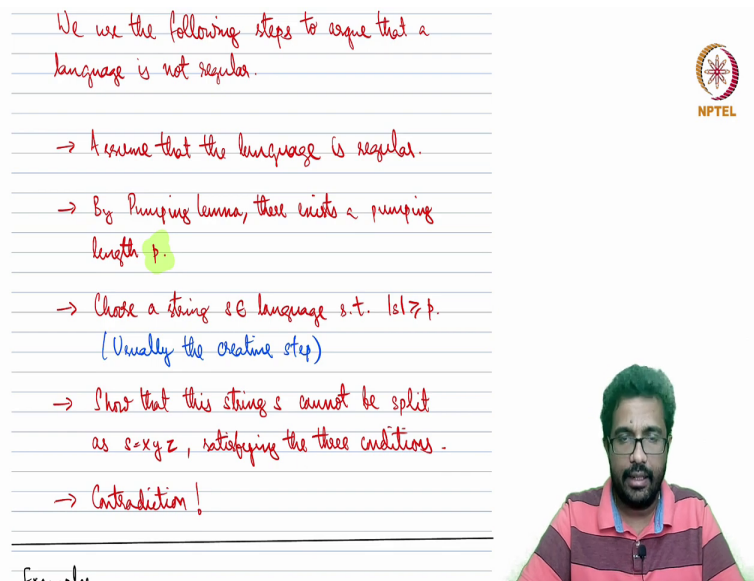 We use the following steps to argue that a
language is not regular.
→ Assume that the language is regular.
→ By Pumping lemma, there exists a pumping
length p.
→ Choose a string s ∈ language s.t. |s| ⩾ p.
(Usually the creative step)
→ Show that this string s cannot be split
as s=xyz, satisfying the three conditions.
→ Contradiction!
NPTEL